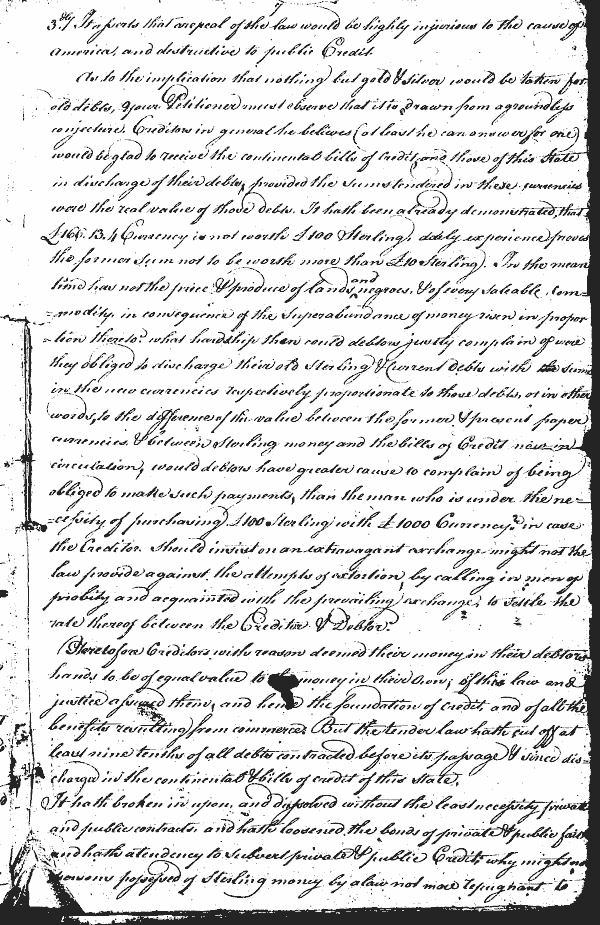 7
3.dly It asserts that a repeal of the law would be highly injurious to the cause of
America, and destructive to public Credit.
As to the implication that nothing but gold & silver would be taken for
old debts, Your Petitioner must observe that it is drawn from a groundless
conjecture. Creditors in general he believes (at least he can answer for one)
would be glad to receive the continental bills of Credit, and those of this State
in discharge of their debts, provided the sums tendered in these currencies
were the real value of those debts. It hath been already demonstrated, that
£166.13.4 Currency is not worth £100 Sterling, daily experience proves
the former sum not to be worth more than £10 Sterling). In the mean
time has not the price & produce of lands, and negroes, & of every saleable com=
=modity, in consequence of the superabundance of money risen in propor
=tion thereto? what hardship then could debtors justly complain of were
they obliged to discharge their old Sterling & current debts with the sums
in the new currencies respectively proportionate to those debts, or in other
words, to the difference of the value between the former & present paper
currencies, & between Sterling money and the bills of Credit now in
circulation, would debtors have greater cause to complain of being
obliged to make such payments, than the man who is under the ne=
=cessity of purchasing £100 Sterling with £1000 Currency? in case
the Creditor should insist on an extravagant exchange might not the
law provide against the attempts of extortion, by calling in men of
probity and acquainted with the prevailing exchange, to settle the
rate thereof between the Creditor & Debtor?
Heretofore Creditors with reason deemed their money in their debtors
hands to be of equal value to money in their own; of this law and
justice assured them, and hence the foundation of credit, and of all the
benefits resulting from commerce. But the tender law hath cut off at
least nine tenths of all debts contracted before its passage & since dis=
charged in the continental & bills of credit of this State.
It hath broken in upon, and dissolved without the least necessity private
and public contracts, and hath loosened the bonds of private & public faith
and hath a tendency to subvert private & public Credit, why might not
persons possessed of Sterling money by a law not more repugnant to